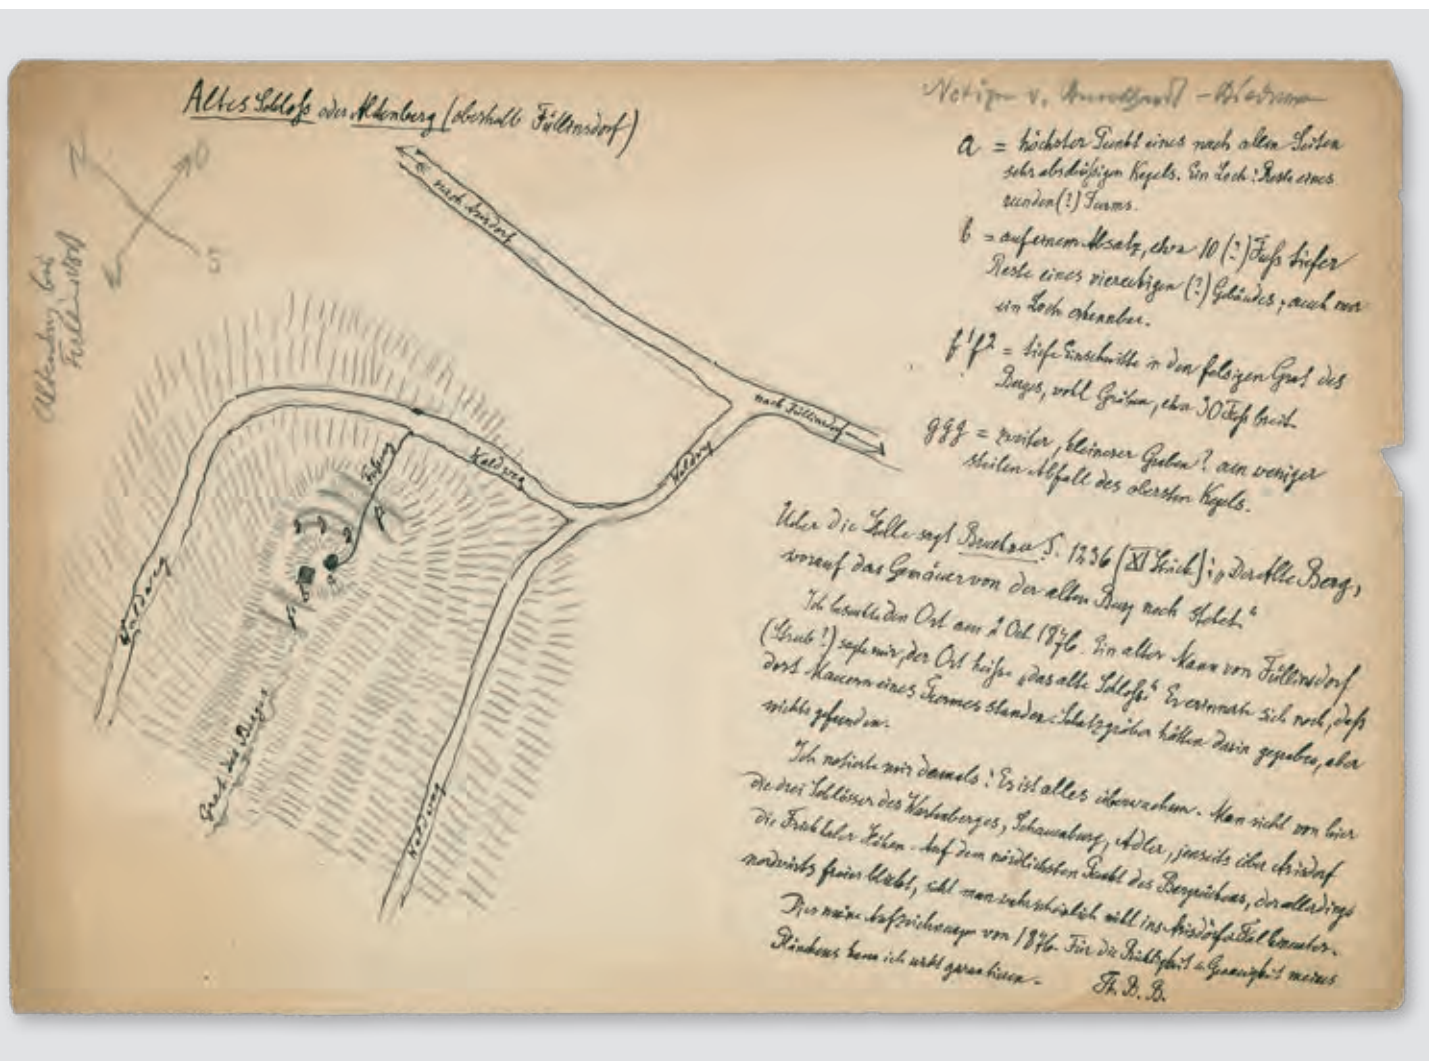 Altes Schloss oder Altenberg (oberhalb Füllinsdorf)
Notizen v. Burckhardt-Biedermann
N
O
S
W
Altenberg bei
Füllinsdorf
nach Arisdorf
nach Füllinsdorf
Waldweg
Waldweg
Waldweg
Waldweg
Fussweg
Grat des Berges
a = höchster Punkt eines nach allen Seiten
sehr abschüssigen Kegels. Ein Loch: Reste eines
runden (?) Turms.
b = auf einem Absatz, etwa 10 (?) Fuss tiefer
Reste eines viereckigen (?) Gebäudes; auch nur
ein Loch erkennbar.
f¹f² = tiefe Einschnitte in den felsigen Grat des
Berges, wohl Gräben, etwa 30 Fuss breit.
ggg = zweiter, kleinerer Graben? am weniger
steilen Abfall des obersten Kegels.
Ueber die Stelle sagt Bruckner S. 1236 (XI Stück): „Der Alte Berg,
worauf das Gemäuer von der alten Burg noch stehet."
Ich besuchte den Ort am 2 Oct. 1876. Ein alter Mann von Füllinsdorf
(Strub?) sagte mir, der Ort heisse „das alte Schloss." Er erinnerte sich noch, dass
dort Mauern eines Turmes standen. Schatzgräber hätten darin gegraben, aber
nichts gefunden.
Ich notierte mir damals: Es ist alles überwachsen. Man sieht von hier
die drei Schlösser des Wartenberges, Schauenburg, Adler, jenseits über Arisdorf
die Fricktaler Höhen. Auf dem nördlichsten Punkt des Bergrückens, der allerdings
nordwärts freier bleibt, sieht man wahrscheinlich wohl ins Arisdörfer Tal hinunter.
Dies meine Aufzeichnungen von 1876. Für die Richtigkeit u. Genauigkeit meines
Plänchens kann ich nicht garantieren.
Th. B. B.